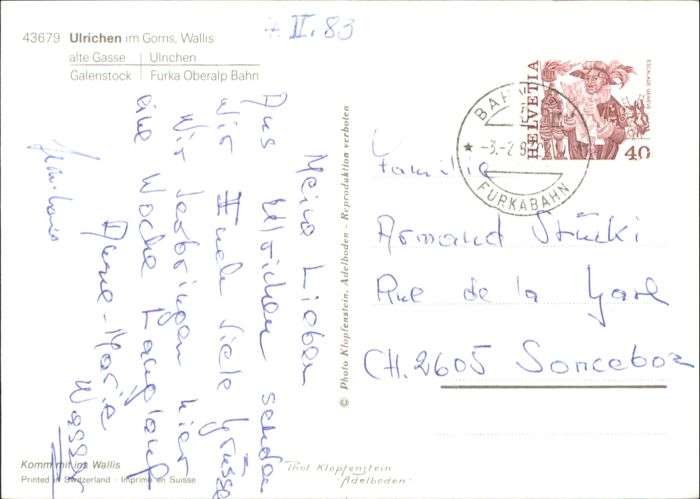 43679 Ulrichen im Goms, Wallis
alte Gasse Ulrichen
Galenstock Furka Oberalp Bahn
4. II. 83
Meine Lieben
Aus Ulrichen senden
wir Euch viele Grüsse
Wir verbringen hier
eine Woche Langlauf
Anne-Marie
© Photo Klopfenstein, Adelboden - Reproduktion verboten
BAHN
-3.-2.8
FURKABAHN
HELVETIA
ESCALADE GENÈVE
40
Familie
Armand Stücki
Rue de la Gare
CH. 2605 Sonceboz
Komm mit ins Wallis
Printed in Switzerland - Imprimé en Suisse
Phot Klopfenstein
Adelboden